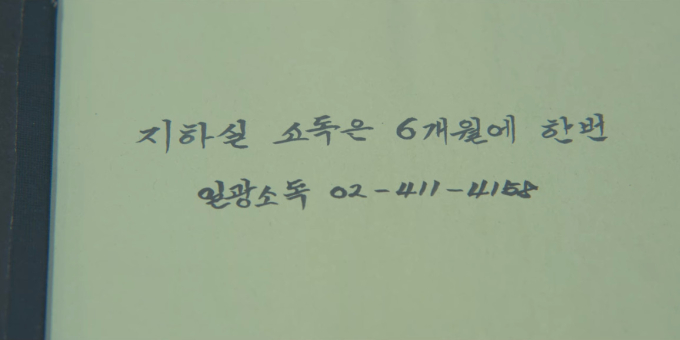 지하실 소독은 6개월에 한번
일광소독 02-411-4158